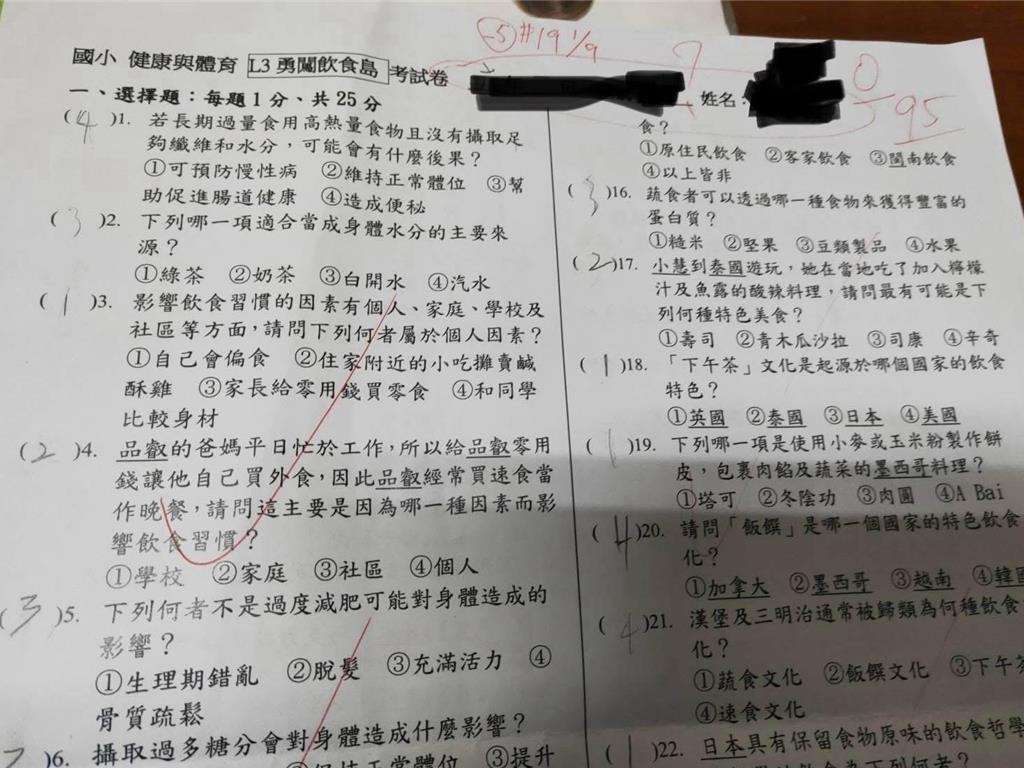 -5 #19 1/9
國小 健康與體育 L3勇闖飲食島 考試卷
姓名:
95
一、選擇題：每題1分、共25分
(4)1. 若長期過量食用高熱量食物且沒有攝取足
夠纖維和水分，可能會有什麼後果？
①可預防慢性病 ②維持正常體位 ③幫
助促進腸道健康 ④造成便秘
(3)2. 下列哪一項適合當成身體水分的主要來
源？
①綠茶 ②奶茶 ③白開水 ④汽水
(1)3. 影響飲食習慣的因素有個人、家庭、學校及
社區等方面，請問下列何者屬於個人因素？
①自己會偏食 ②住家附近的小吃攤賣鹹
酥雞 ③家長給零用錢買零食 ④和同學
比較身材
(2)4. 品叡的爸媽平日忙於工作，所以給品叡零用
錢讓他自己買外食，因此品叡經常買速食當
作晚餐，請問這主要是因為哪一種因素而影
響飲食習慣？
①學校 ②家庭 ③社區 ④個人
(3)5. 下列何者不是過度減肥可能對身體造成的
影響？
①生理期錯亂 ②脫髮 ③充滿活力 ④
骨質疏鬆
)6. 攝取過多糖分會對身體造成什麼影響？
②保持正常體位 ③提升
食？
①原住民飲食 ②客家飲食 ③閩南飲食
④以上皆非
(3)16. 蔬食者可以透過哪一種食物來獲得豐富的
蛋白質？
①糙米 ②堅果 ③豆類製品 ④水果
(2)17. 小慧到泰國遊玩，她在當地吃了加入檸檬
汁及魚露的酸辣料理，請問最有可能是下
列何種特色美食？
①壽司 ②青木瓜沙拉 ③司康 ④辛奇
(1)18. 「下午茶」文化是起源於哪個國家的飲食
特色？
①英國 ②泰國 ③日本 ④美國
(1)19. 下列哪一項是使用小麥或玉米粉製作餅
皮，包裹肉餡及蔬菜的墨西哥料理？
①塔可 ②冬陰功 ③肉圓 ④A Bai
(4)20. 請問「飯饌」是哪一個國家的特色飲食
化？
①加拿大 ②墨西哥 ③越南 ④韓國
(4)21. 漢堡及三明治通常被歸類為何種飲食
化？
①蔬食文化 ②飯饌文化 ③下午茶
④速食文化
(1)22. 日本具有保留食物原味的飲食哲學